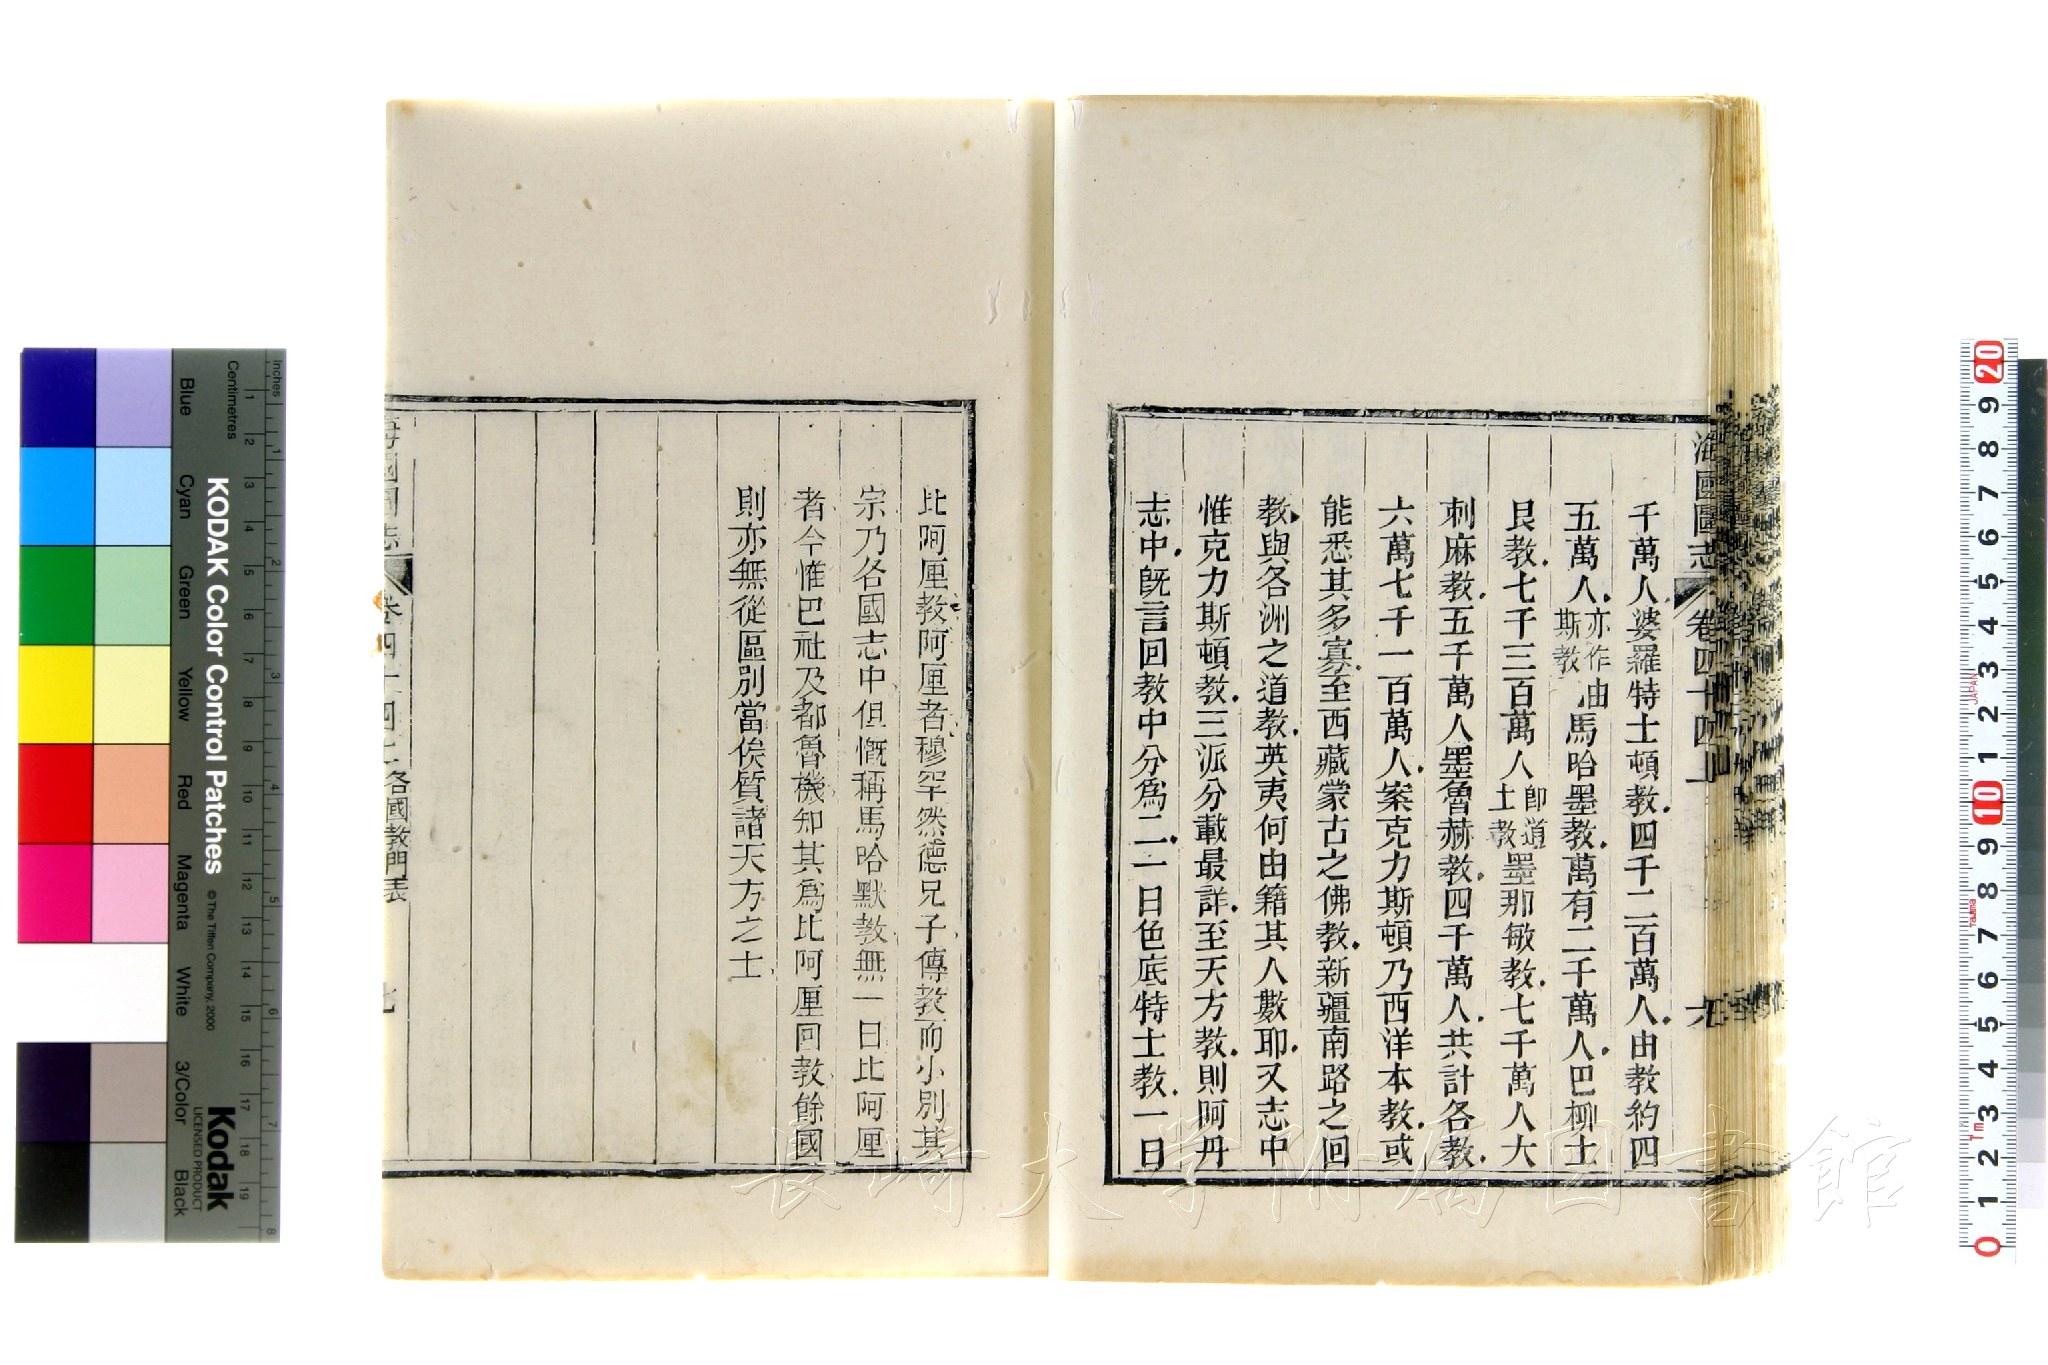 海國圖志
卷四十四
九
千萬人婆羅特士頓教四千二百萬人由教約四
五萬人亦作由斯教馬哈墨教萬有二千萬人巴柳士
艮教七千三百萬人卽道士教墨那敏教七千萬人大
刺麻教五千萬人墨魯赫教四千萬人共計各教
六萬七千一百萬人案克力斯頓乃西洋本教或
能悉其多寡至西藏蒙古之佛教新疆南路之回
教與各洲之道教英夷何由籍其人數耶又志中
惟克力斯頓教三派分載最詳至天方教則阿丹
志中旣言回教中分爲二一曰色底特士教一曰
比阿厘教阿厘者穆罕然德兄子傳教而小別其
宗乃各國志中但慨稱馬哈默教無一曰比阿厘
者今惟巴社及都魯機知其爲比阿厘回教餘國
則亦無從區別當俟質諸天方之士
海國圖志
卷四十四
各國教門表
七
長崎大学附属図書館
KODAK Color Control Patches
© The Tiffen Company, 2000
Kodak
LICENSED PRODUCT
Inches
Centimetres
Blue
Cyan
Green
Yellow
Red
Magenta
White
3/Color
Black
1 2 3 4 5 6 7 8
1 2 3 4 5 6 7 8 9 10 11 12 13 14 15 16 17 18 19
20 9 8 7 6 5 4 3 2 1 10 9 8 7 6 5 4 3 2 1 0
JAPAN